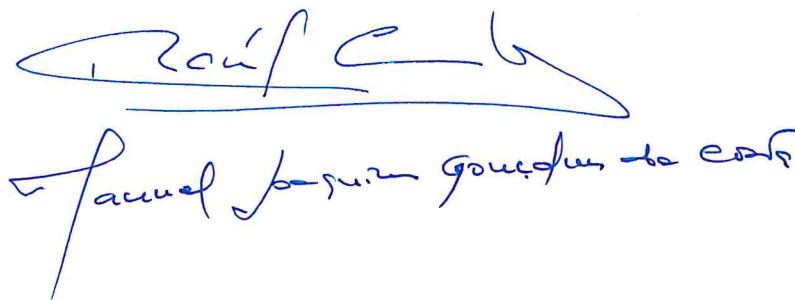 Raúl
Manuel Joaquim Gonçalves da Costa